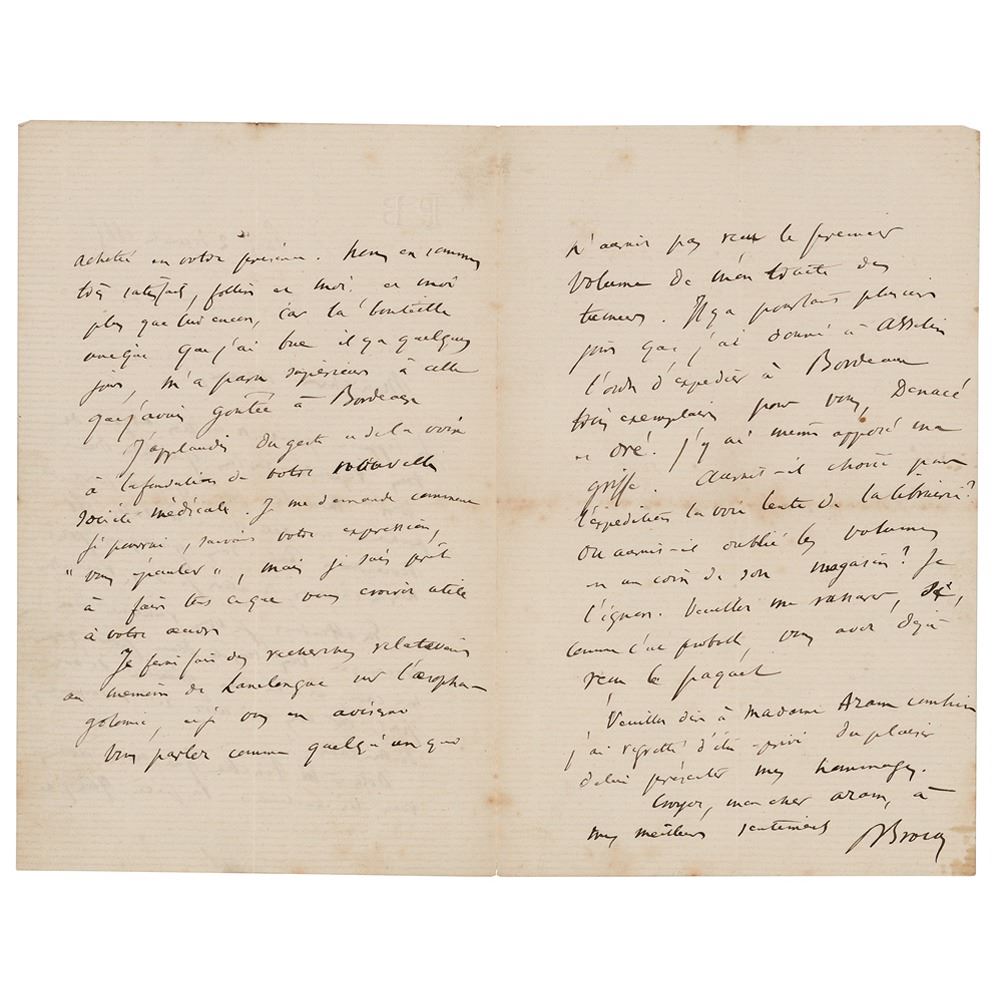 acheté en votre présence. Nous en sommes
très satisfaits, follin et moi ; et moi
plus que lui encore, car la bouteille
unique que j'ai bue il y a quelques
jours, m'a paru supérieure à celle
que j'avais goutée à Bordeaux
J'applaudis du geste et de la voix
à la fondation de votre nouvelle
Société médicale. Je me demande comment
je pourrai, suivant votre expression,
" vous épauler ", mais je suis prêt
à faire tout ce que vous croirez utile
à votre œuvre
Je ferai faire des recherches relativement
au mémoire de Lanelongue sur l'œsopha-
gotomie, et je vous en aviserai
Vous parlez comme quelqu'un qui
n'aurait pas reçu le premier
volume de mon traité des
tumeurs. Il y a pourtant plusieurs
jours que j'ai donné à Asselin
l'ordre d'expédier à Bordeaux
trois exemplaires pour vous, Denucé
et Oré. J'y ai même apposé ma
griffe. Aurait-il choisi pour
l'expédition la voie lente de la librairie ?
Ou aurait-il oublié les volumes
en un coin de son magasin ? Je
l'ignore. Veuillez me rassurer, si,
comme c'est probable, vous avez déjà
reçu le paquet
Veuillez dire à madame Azam combien
j'ai regretté d'être privé du plaisir
de lui présenter mes hommages.
Croyez, mon cher Azam, à
mes meilleurs sentiments PBroca
PB